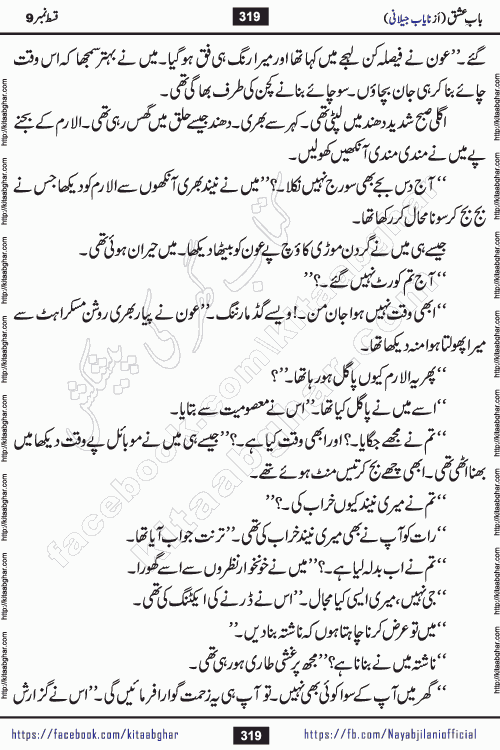 باب عشق (از نایاب جیلانی) 319 قسط نمبر 9
گئے۔’’ عون نے فیصلہ کن لہجے میں کہا تھا اور میرا رنگ ہی فق ہو گیا۔ میں نے بہتر سمجھا کہ اس وقت
چائے بنا کر ہی جان بچاؤں۔ سو چائے بنانے کچن کی طرف بھاگی تھی۔
اگلی صبح شدید دھند میں لپٹی تھی۔ کہر سے بھری۔ دھند جیسے حلق میں گھس رہی تھی۔ الارم کے بجنے
پے میں نے مندی مندی آنکھیں کھولیں۔
‘‘آج دس بجے بھی سورج نہیں نکلا۔؟’’ میں نے نیند بھری آنکھوں سے الارم کو دیکھا جس نے
بج بج کر سونا محال کر رکھا تھا۔
جیسے ہی میں نے گردن موڑی کاؤچ پے عون کو بیٹھا دیکھا۔ میں حیران ہوئی تھی۔
‘‘آج تم کورٹ نہیں گئے۔؟’’
‘‘ابھی وقت نہیں ہوا جان من۔! ویسے گڈ مارننگ۔’’ عون نے پیار بھری روشن مسکراہٹ سے
میرا پھولتا ہوا منہ دیکھا تھا۔
‘‘پھر یہ الارم کیوں پاگل ہو رہا تھا۔’’؟
‘‘اسے میں نے پاگل کیا تھا۔’’ اس نے معصومیت سے بتایا۔
‘‘تم نے مجھے جگایا۔؟ اور ابھی وقت کیا ہے۔؟’’ جیسے ہی میں نے موبائل پے وقت دیکھا میں
بھنا اٹھی تھی۔ ابھی چھے بج کر تیس منٹ ہوئے تھے۔
‘‘تم نے میری نیند کیوں خراب کی۔؟’’
‘‘رات کو آپ نے بھی میری نیند خراب کی تھی۔’’ ترنت جواب آیا تھا۔
‘‘تم نے اب بدلہ لیا ہے۔؟’’ میں نے خونخوار نظروں سے اسے گھورا۔
‘‘جی نہیں، میری ایسی کیا مجال۔’’ اس نے ڈرنے کی ایکٹنگ کی تھی۔
‘‘میں تو عرض کرنا چاہتا ہوں کہ ناشتہ بنا دیں۔’’
‘‘ناشتہ میں نے بنانا ہے؟’’ مجھ پر غشی طاری ہو رہی تھی۔
‘‘گھر میں آپ کے سوا کوئی بھی نہیں۔ تو آپ ہی یہ زحمت گوارا فرمائیں گی۔’’ اس نے گزارش
https://facebook.com/kitaabghar 319 https://fb.com/Nayabjilaniofficial
http://kitaabghar.com
کتاب گھر کی پیشکش
kitaabghar.com
facebook.com/kitaabghar